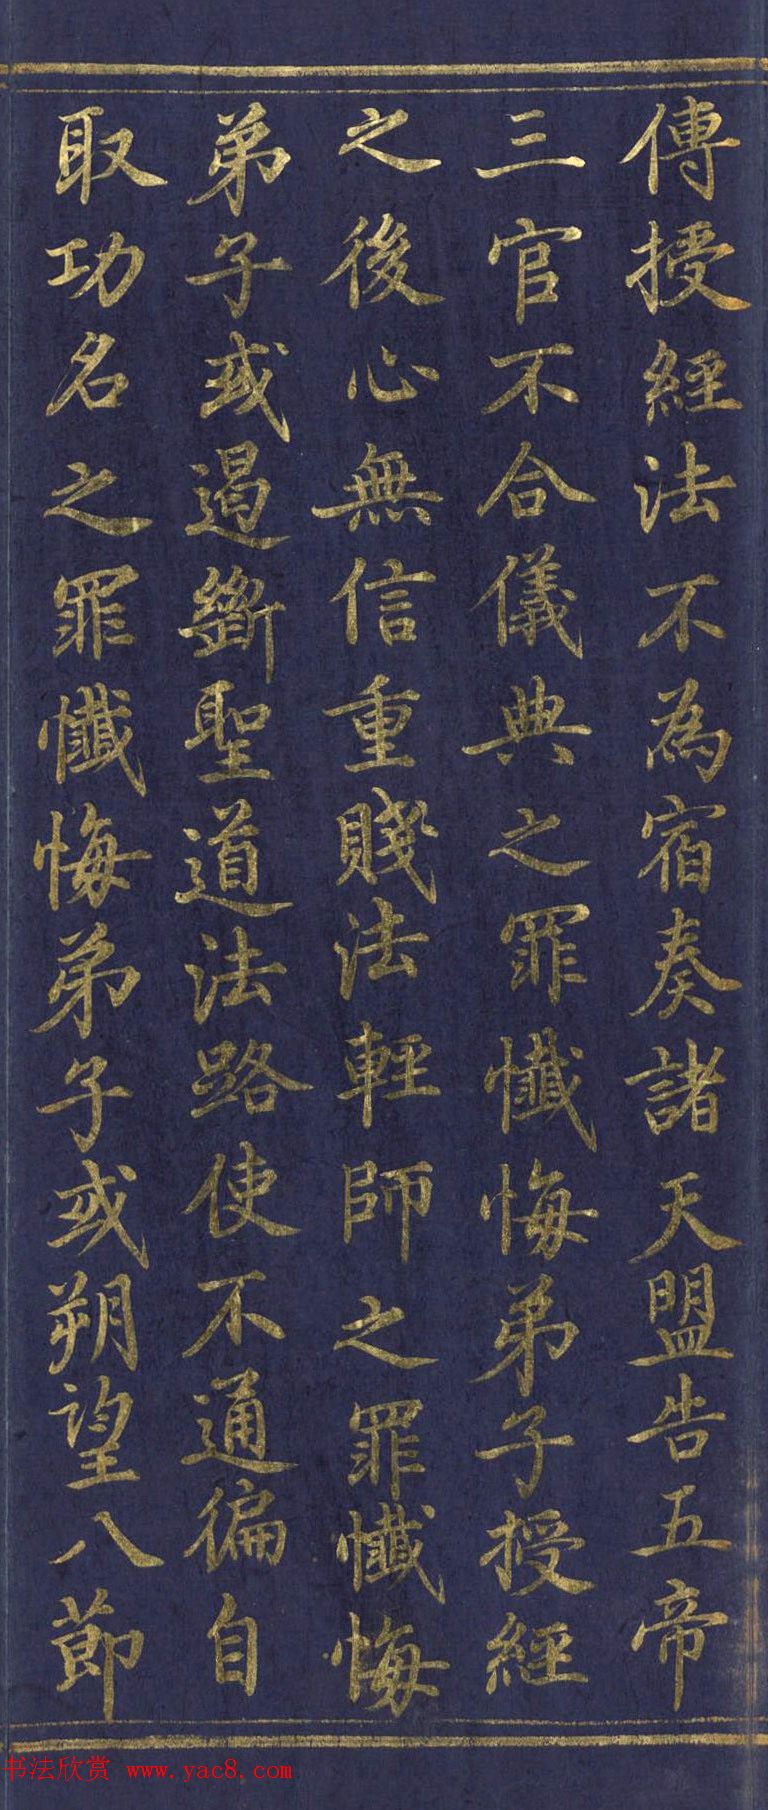 傳授經法不為宿奏諸天盟告五帝
三官不合儀典之罪懺悔弟子授經
之後心無信重賤法輕師之罪懺悔
弟子或遏斷聖道法路使不通徧自
取功名之罪懺悔弟子或朔望八節
书法欣赏 www.yac8.com